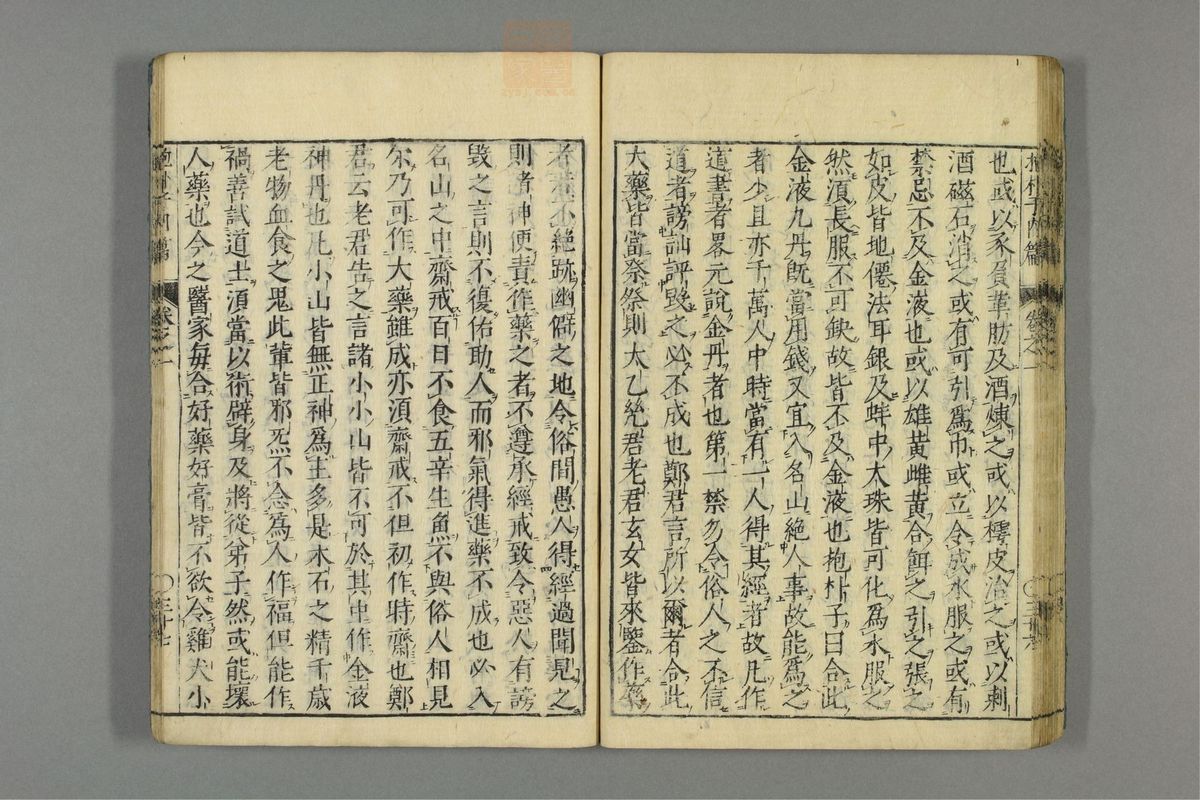 也或以豕負革肪及酒煉之或以樗皮治之或以荆
酒磁石消之或有可引爲巾或立令成水服之或有
禁忌不及金液也或以雄黃雌黃合餌之引之張之
如皮皆地僊法耳銀及蚌中大珠皆可化爲水服之
然湏長服不可缺故皆不及金液也抱朴子曰合此
金液九丹旣當用錢又宜入名山絶人事故能爲之
者少且亦千萬人中時當有一人得其經者故凡作
道書者畧元說金丹者也第一禁勿令俗人之不信
道者謗訕評毀之必不成也鄭君言所以爾者合此
大藥皆當祭祭則太乙元君老君玄女皆來鑒作藥
者若不絕跡幽僻之地令俗間愚人得經過聞見之
則諸神便責作藥之者不遵承經戒致令惡人有謗
毀之言則不復佑助人而邪氣得進藥不成也必入
名山之中齋戒百日不食五辛生魚不與俗人相見
尔乃可作大藥雖成亦湏齋戒不但初作時齋也鄭
君云老君告之言諸小小山皆不可於其中作金液
神丹也凡小山皆無正神爲主多是木石之精千歲
老物血食之鬼此輩皆邪炁不念爲人作福但能作
禍善試道士湏當以術辟身及將從弟子然或能壞
人藥也今之醫家每合好藥好膏皆不欲令雞犬小
抱朴子內篇 卷之一 三十六
抱朴子內篇 卷之一 三十七